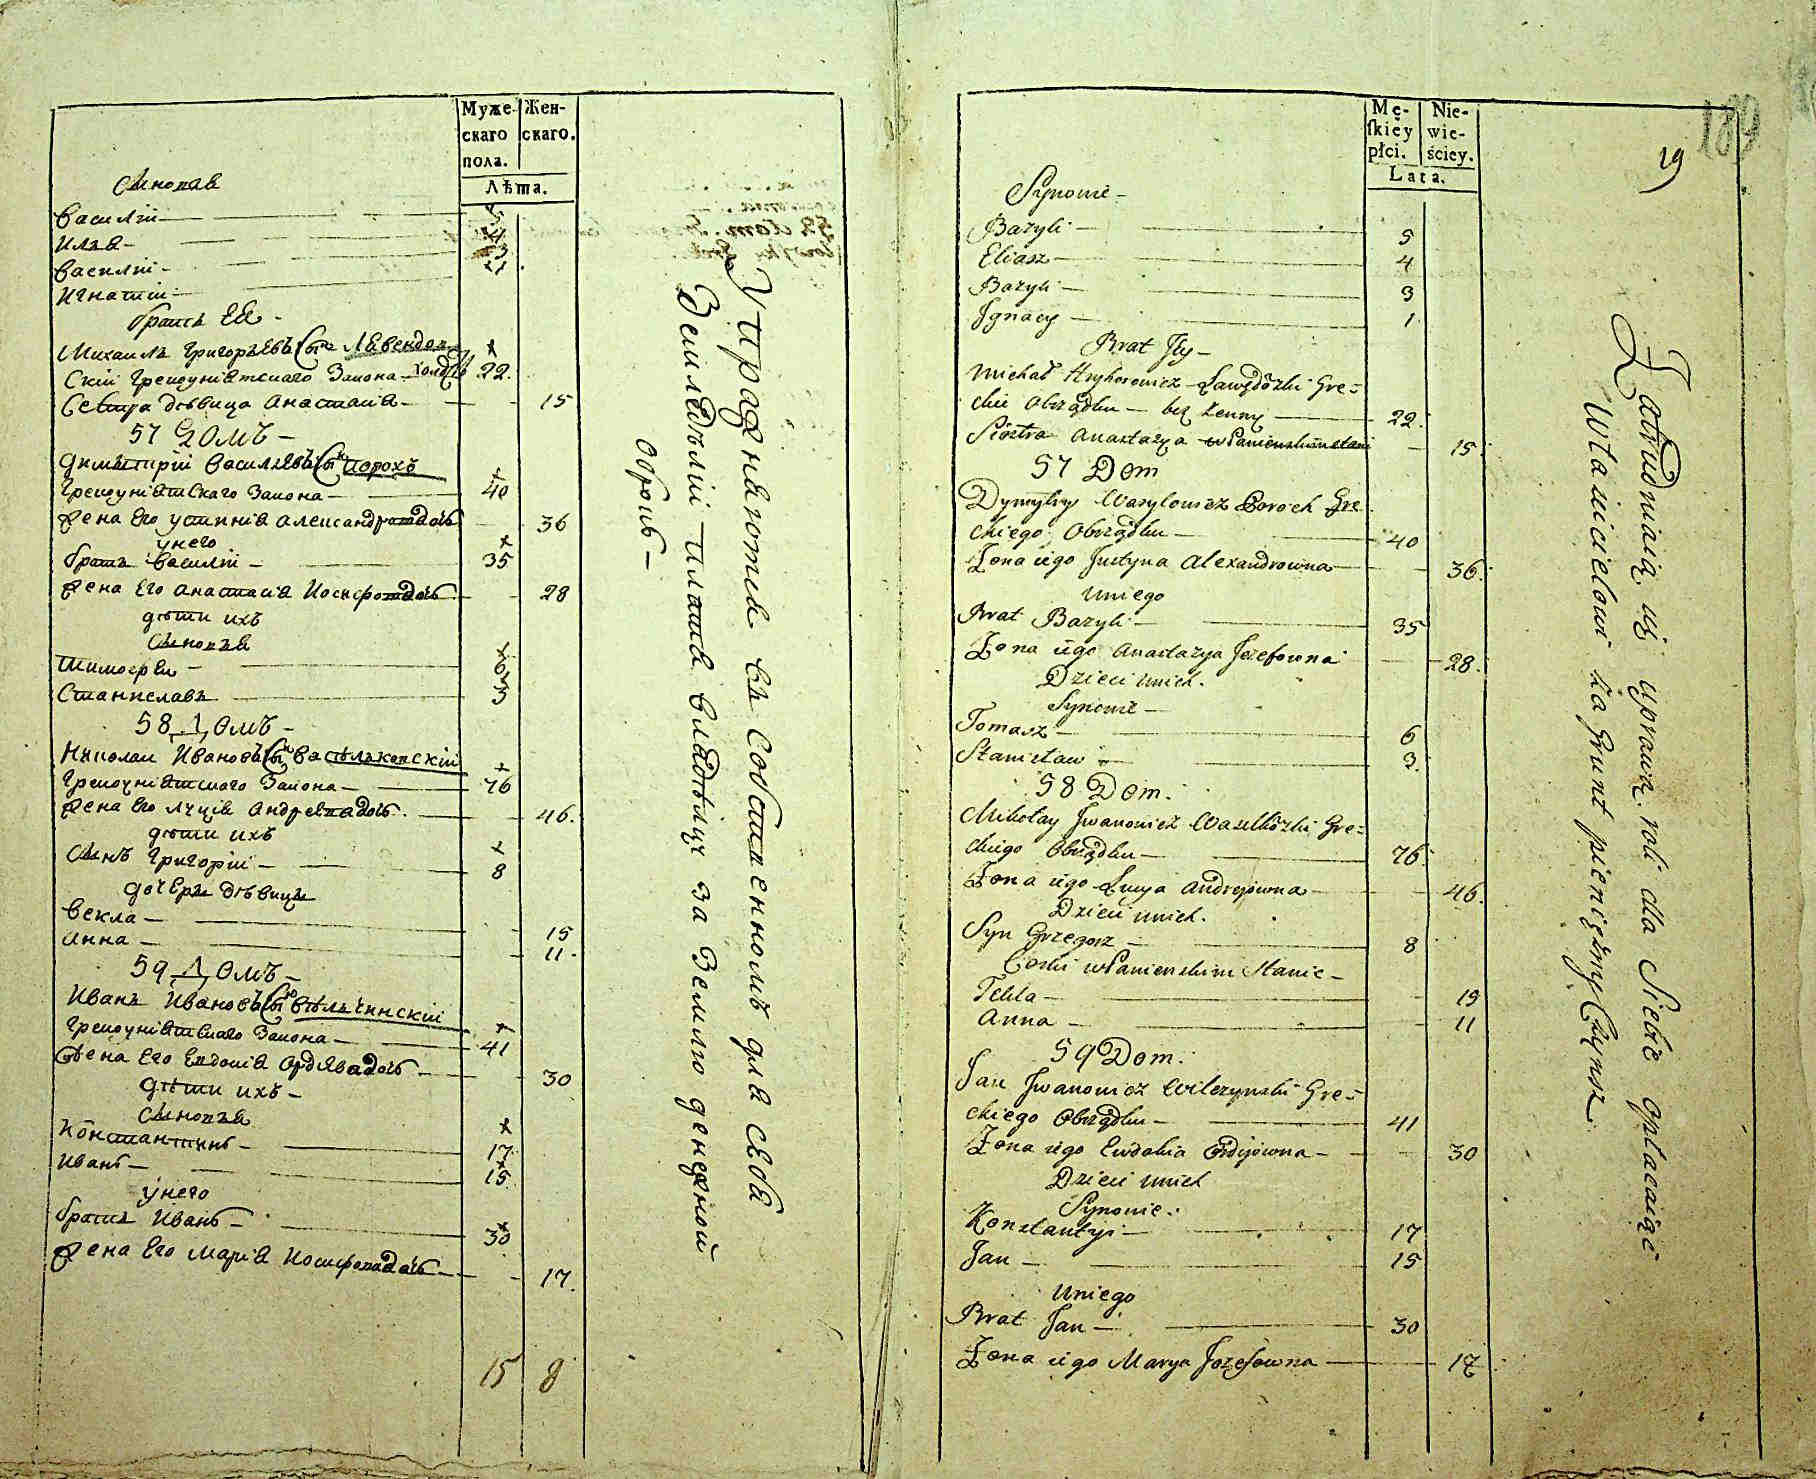 Муже-
скаго
пола.
Жен-
скаго.
Лѣта.
Сыновья
Василій — 5
Илья — 4
Василій — 3
Игнатій — 1
братъ Ея —
Михаилъ Григорьевъ Сынъ Лавендов
скій Грекоуніятскаго Закона — холостъ 22.
Сестра дѣвица Анастасія — 15
57 Домъ —
Димитрій Васильевъ Сынъ Порохъ
Грекоуніятскаго Закона — 40
Жена Его Устинія Александровадочь 36
у него
братъ Василій — 35
Жена Его Анастасія Иосифовадочь — 28
дѣти ихъ
Сыновья
Тимофей — 6
Станиславъ — 3
58 Домъ —
Николай Ивановъ Сынъ Васильковскій
Грекоуніятскаго Закона — 76
Жена Его Луція Андреевадочь — 46.
дѣти ихъ
Сынъ Григорій — 8
дочери дѣвицы
Векла — 15
Анна — 11.
59 Домъ —
Иванъ Ивановъ Сынъ Вѣльчинскій
Грекоуніятскаго Закона — 41
Жена Его Евдокія — 30
дѣти ихъ —
Сыновья
Константинъ — 17
Иванъ — 15
у него
братъ Иванъ — 30
Жена Его Марія Иосифовадочь — 17.
15 8
Упражняются въ Собственномъ для себя
Земледѣліи платя владѣльцу за Землю денежной
Оброкъ —
189
19
Mę-
ſkiey
płci.
Nie-
wie-
ściey.
Lata.
Synowie —
Bazyli — 5
Eliasz — 4
Bazyli — 3
Ignacy — 1
Brat Jey —
Michał Hryhorowicz Ławędôzki Gre=
ckie Obrządku — bez Żenny — 22.
Siostra Anastazya w Panienskim stani — 15.
57 Dom
Dymytry Wasylowicz Poroch Gre
ckiego Obrządku — 40
Żona iego Justyna Alexandrowna — 36.
Uniego
Brat Bazyli — 35
Żona iego Anastazya Jozefowna — 28.
Dzieci unich.
Synowie —
Tomasz — 6
Stanisław — 3.
58 Dom.
Mikołay Jwanowicz Waselkôzki Gre=
ckiego Obrządku — 76.
Żona iego Łucya Andrejowna — 46.
Dzieci unich.
Syn Grzegorz — 8
Corki w Panienskim Stanie —
Tekla — 19
Anna — 11
59 Dom.
Jan Jwanowicz Wilczynski Gre=
ckiego Obrządku — 41
Żona iego Ewdokia — 30
Dzieci unich
Synowie.
Konstantyi — 17
Jan — 15
Uniego
Brat Jan — 30
Żona iego Marya Jozefowna — 17.
Zatrudniaią się uprawą roli dla Siebie opłacaiąc
Własicielowi za Grunt pieniężny Czynsz